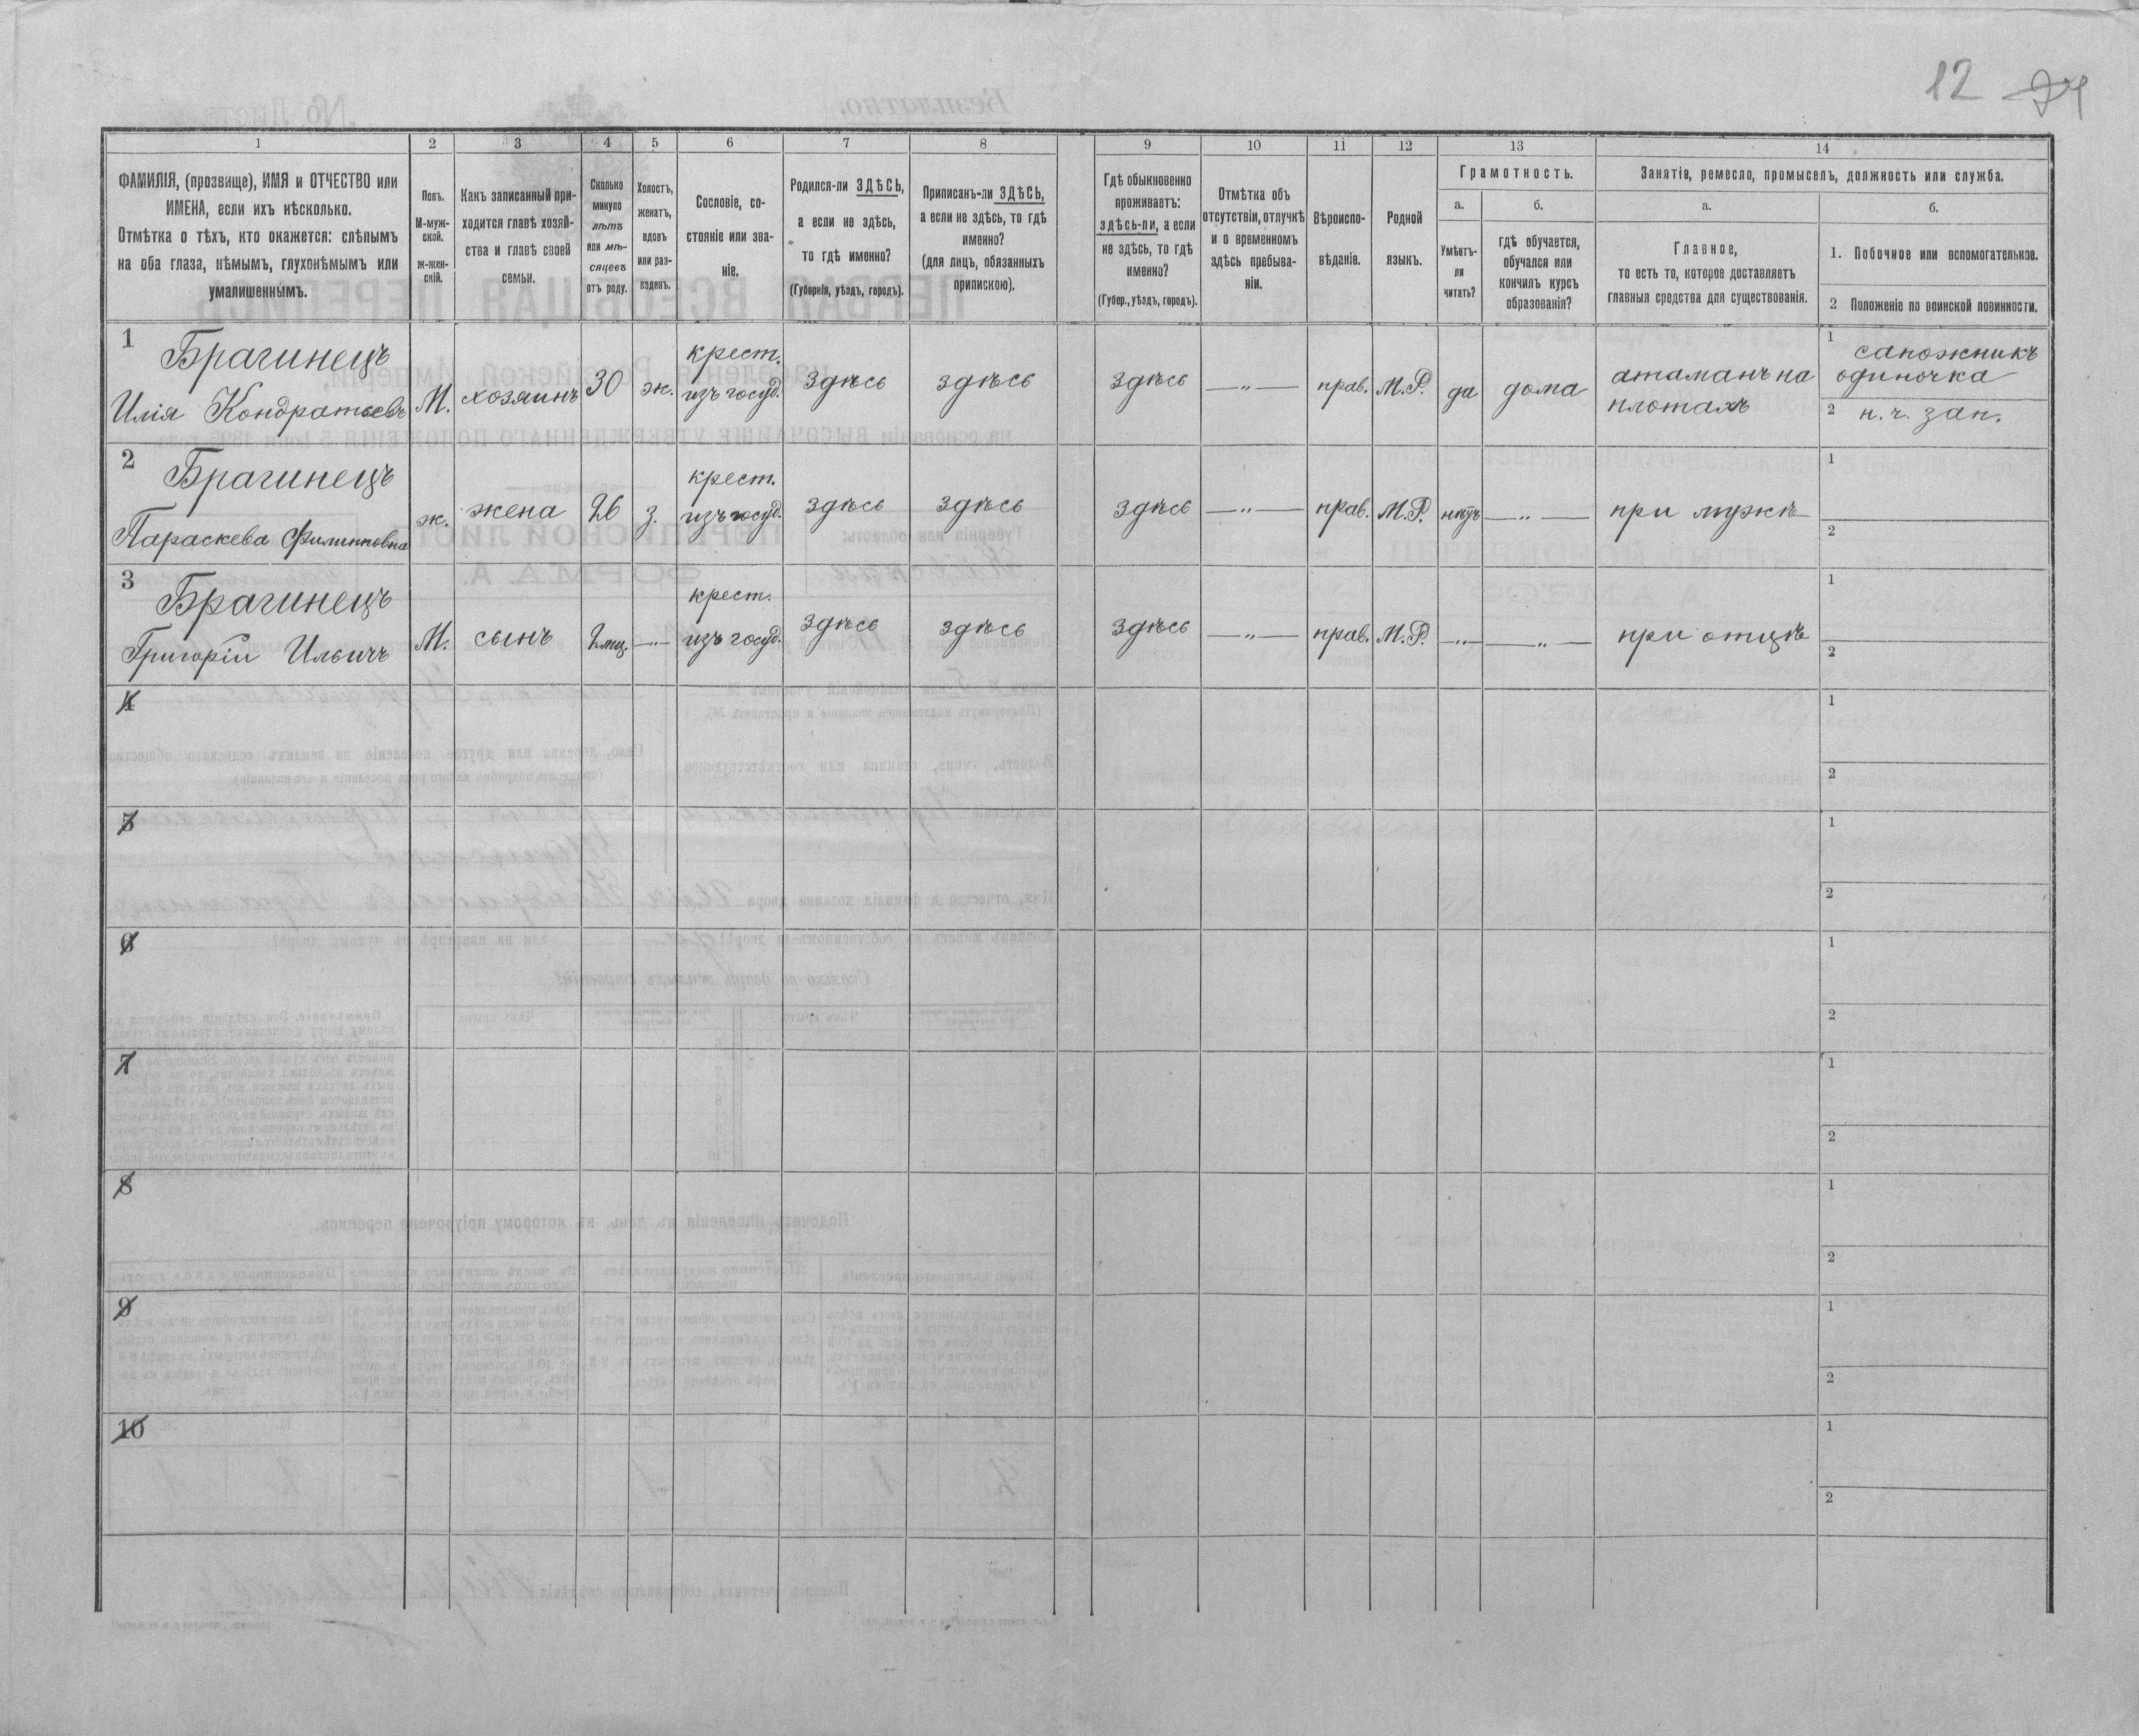 12 24
1 2 3 4 5 6 7 8 9 10 11 12 13 14
ФАМИЛІЯ, (прозвище), ИМЯ и ОТЧЕСТВО или
ИМЕНА, если ихъ нѣсколько.
Отмѣтка о тѣхъ, кто окажется: слѣпымъ
на оба глаза, нѣмымъ, глухонѣмымъ или
умалишеннымъ.
Полъ.
М-муж-
ской.
Ж-жен-
скій.
Какъ записанный при-
ходится главѣ хозяй-
ства и главѣ своей
семьи.
Сколько
минуло
лѣтъ
или мѣ-
сяцевъ
отъ роду.
Холостъ,
женатъ,
вдовъ
или раз-
веденъ.
Сословіе, со-
стояніе или зва-
ніе.
Родился-ли ЗДѢСЬ,
а если не здѣсь,
то гдѣ именно?
(Губернія, уѣздъ, городъ).
Приписанъ-ли ЗДѢСЬ,
а если не здѣсь, то гдѣ
именно?
(для лицъ, обязанныхъ
припискою).
Гдѣ обыкновенно
проживаетъ:
здѣсь-ли, а если
не здѣсь, то гдѣ
именно?
(Губер., уѣздъ, городъ).
Отмѣтка объ
отсутствіи, отлучкѣ
и о временномъ
здѣсь пребыва-
ніи.
Вѣроиспо-
вѣданіе.
Родной
языкъ.
Грамотность.
а.
Умѣетъ-
ли
читать?
б.
гдѣ обучается,
обучался или
кончилъ курсъ
образованія?
Занятіе, ремесло, промыселъ, должность или служба.
а.
Главное,
то есть то, которое доставляетъ
главныя средства для существованія.
б.
1. Побочное или вспомогательное.
2 Положеніе по воинской повинности.
1 Брагинецъ
Илія Кондратьевъ М. хозяинъ 30 ж. крест. изъ госуд. здѣсь здѣсь здѣсь —„— прав. М.Р. да дома атаманъ на плотахъ
1 сапожникъ
одиночка
2 н. ч. зап.
2 Брагинецъ
Параскева Филипповна ж. жена 26 з. крест. изъ госуд. здѣсь здѣсь здѣсь —„— прав. М.Р. нѣтъ —„— при мужѣ
1
2
3 Брагинецъ
Григорій Ильичъ М. сынъ 2 мц. —„— крест. изъ госуд. здѣсь здѣсь здѣсь —„— прав. М.Р. —„— —„— при отцѣ
1
2
4
1
2
5
1
2
6
1
2
7
1
2
8
1
2
9
1
2
10
1
2